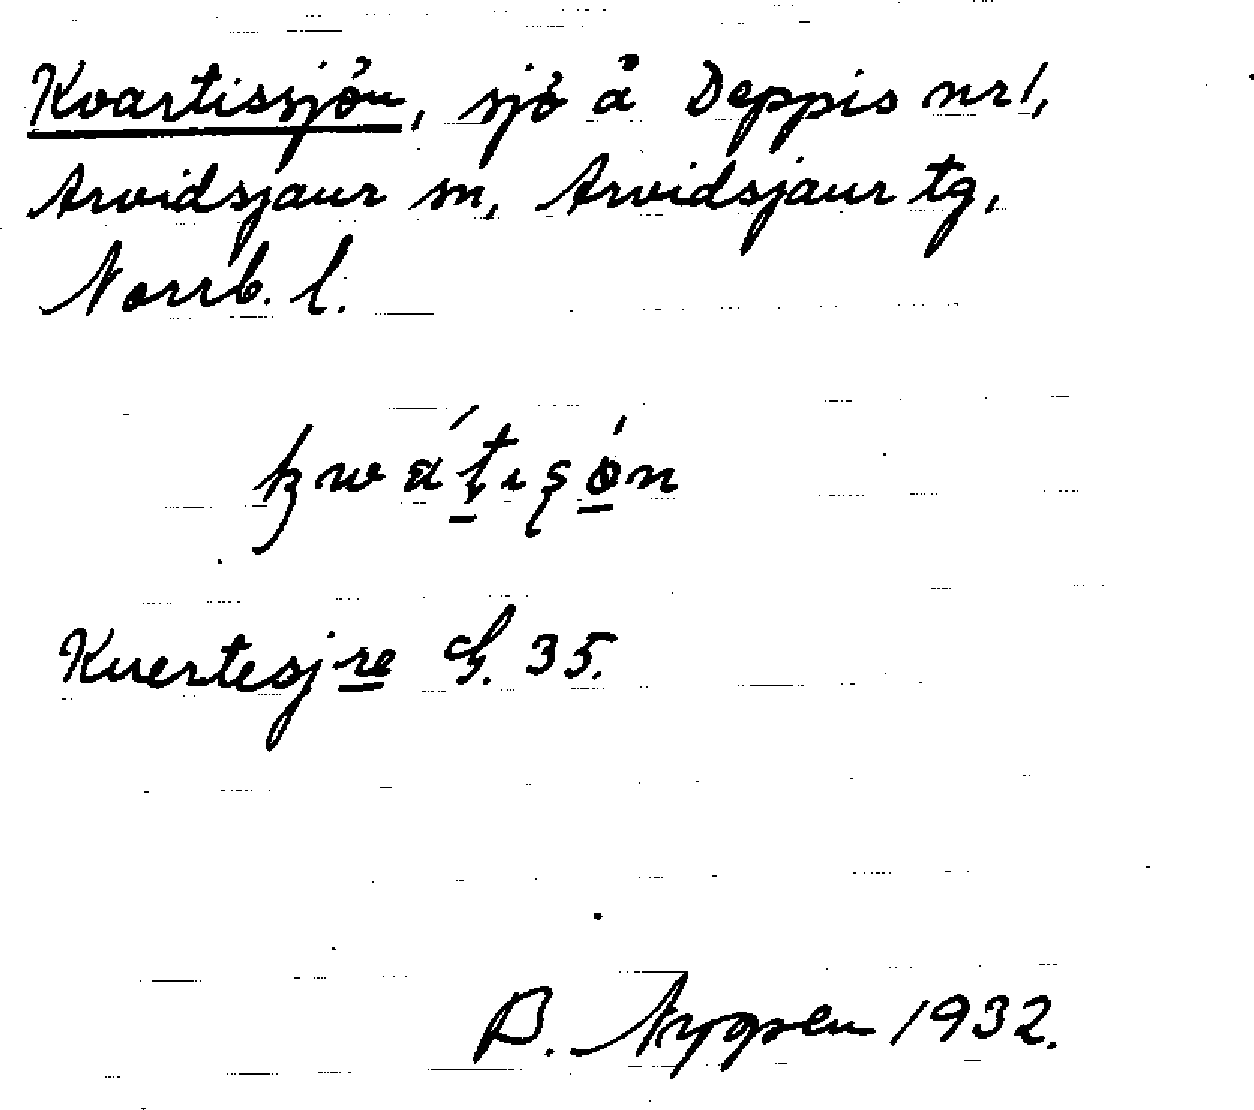 Kvartissjön, sjö å Deppis nr 1,
Arvidsjaur sn, Arvidsjaur tg,
Norrb. l.
Kvertesjre G. 35.
B. Nygren 1932.